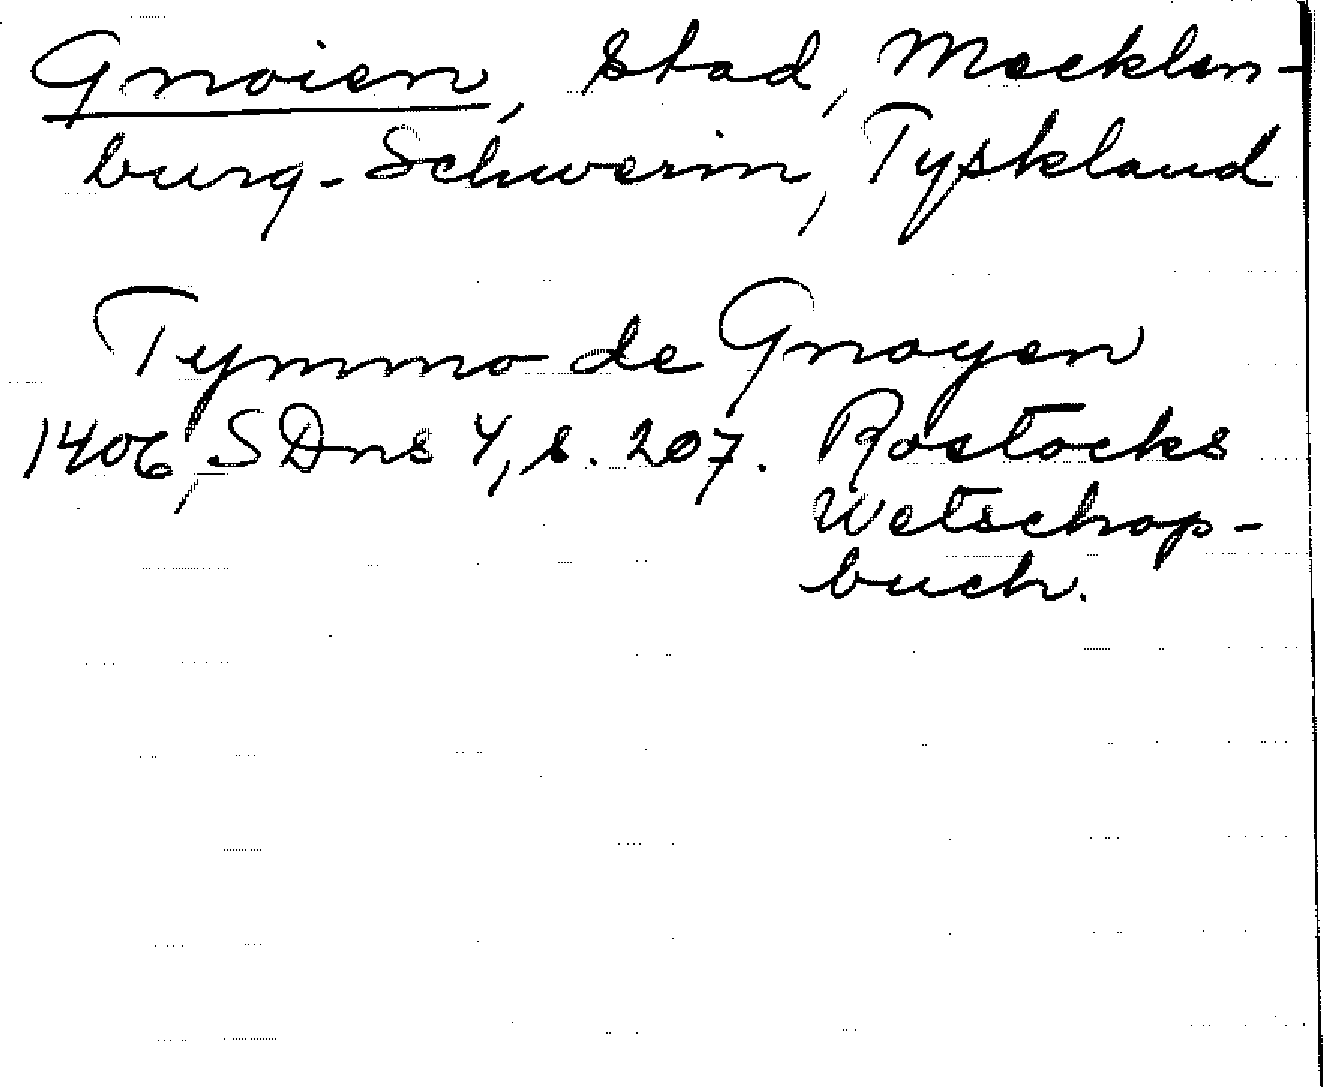 Gnoien, stad, Mecklen-
burg-Schwerin, Tyskland
Tymmo de Gnoyen
1406, SDns 4, s. 207. Rostocks
Wetschop-
buch.